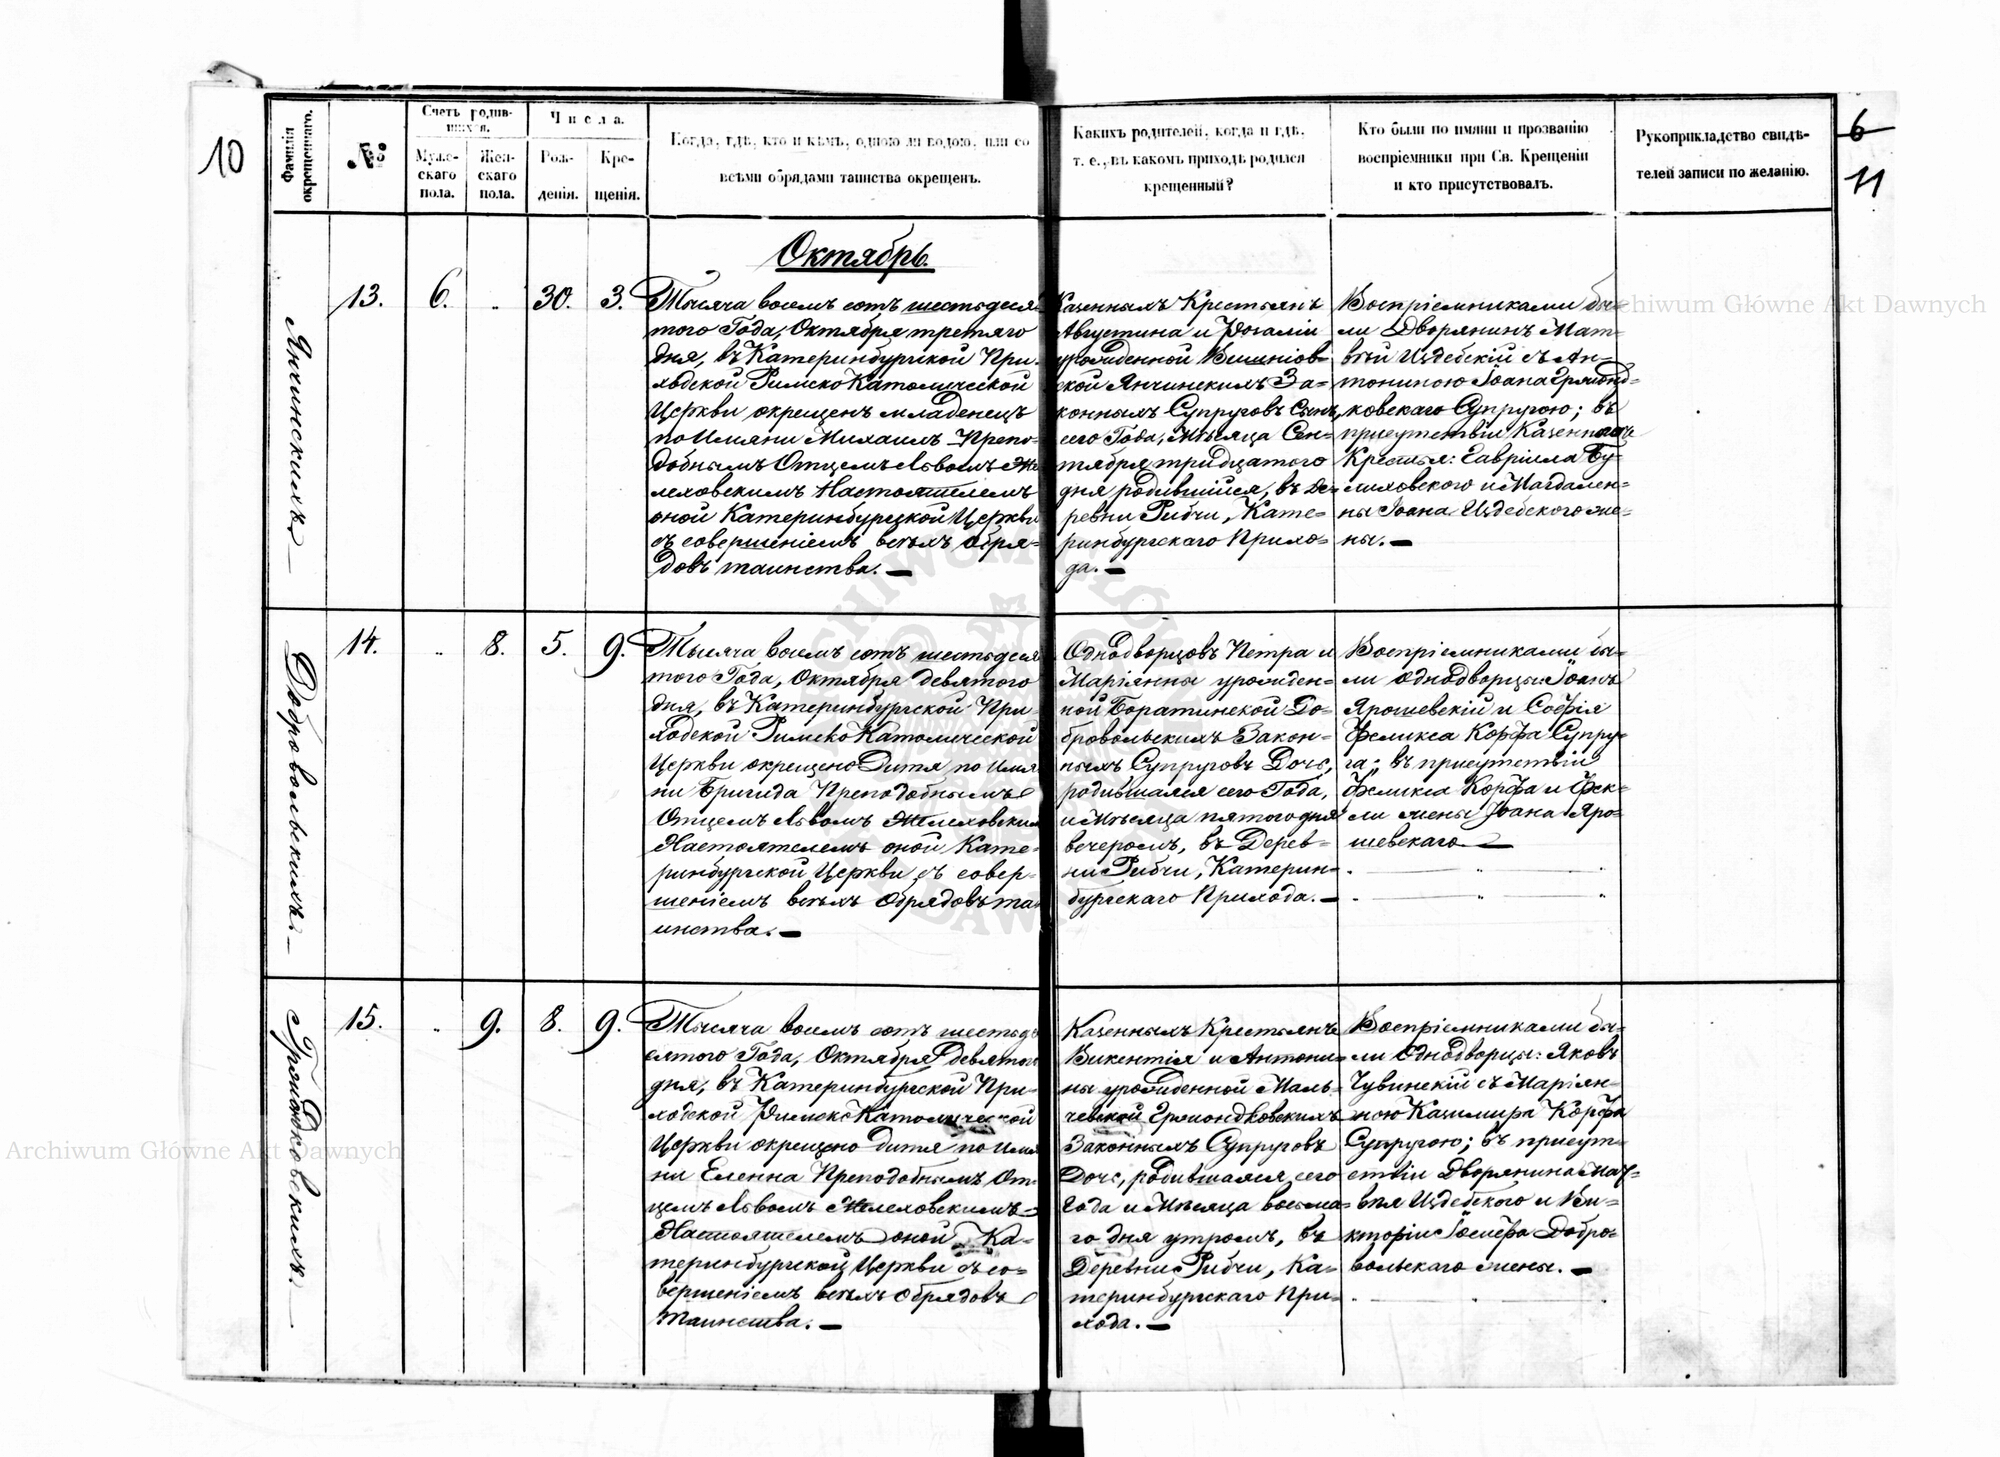 10
6
11
Фамилія окрещеннаго.
№
Счетъ родив-
шихся.
Муже-
скаго
пола.
Жен-
скаго
пола.
Числа.
Рож-
денія.
Кре-
щенія.
Когда, гдѣ, кто и кѣмъ, одною ли водою, или со
всѣми обрядами таинства окрещенъ.
Какихъ родителей, когда и гдѣ,
т. е., въ какомъ приходѣ родился
крещенный?
Кто были по имяни и прозванію
воспріемники при Св. Крещеніи
и кто присутствовалъ.
Рукоприкладство свидѣ-
телей записи по желанію.
Октябрь.
Янчинскихъ
13.
6.
30.
3.
Тысяча восемь сотъ шестьдеся
того Года, Октября третяго
дня, въ Катеринбургской При-
ходской Римско Католической
Церкви окрещенъ младенецъ
по Имяни Михаилъ Препо-
добнымъ Отцемъ Львомъ Же
леховскимъ Настоятелемъ
оной Катеринбургской Церкви
съ совершеніемъ всѣхъ обря-
довъ таинства.
Казенныхъ Крестьянъ
Августина и Розаліи
урожденной Вишніов-
ской Янчинскихъ За-
конныхъ Супруговъ Сынъ,
сего Года, Мѣсяца Сен-
тября тридцатого
дня родившійся, въ Де-
ревни Рибчи, Кате-
ринбургскаго Прихо-
да.
Воспріемниками бы-
ли Дворянинъ Мат-
вѣй Издебскій съ Ан-
тониною Іоана Грямонд-
ковскаго Супругою; въ
присутствіи Казенного
Крестья: Гавріила Бу-
лиховского и Магдален-
ны Іоана Издебского же-
ны.
Добровольскихъ
14.
8.
5.
9.
Тысяча восемь сотъ шестьдеся
того Года, Октября девятого
дня, въ Катеринбургской При
ходской Римско Католической
Церкви окрещено Дитя по имя
ни Бригида Преподобнымъ
Отцемъ Львомъ Желеховским
Настоятелемъ оной Кате-
ринбургской Церкви съ совер-
шеніемъ всѣхъ обрядовъ та
инства.
Однодворцовъ Петра и
Маріянны урожден-
ной Боратинской До-
бровольскихъ Закон-
ныхъ Супруговъ Дочь,
родившаяся сего Года,
и Мѣсяца пятого дня
вечеромъ, въ Дерев-
ни Рибчи, Катерин-
бургскаго Прихода.
Воспріемниками бы-
ли однодворцы: Іоанъ
Ярошевскій и Софія
Феликса Корфа Супру-
га; въ присутствіи
Феликса Корфа и Фек-
ли жены Іоана Яро-
шевскаго
Грямондковскихъ
15.
9.
8.
9.
Тысяча восемь сотъ шестьде
сятого Года, Октября девятого
дня, въ Катеринбургской При-
ходской Римско Католической
Церкви окрещено дитя по имя
ни Еленна Преподобнымъ От-
цемъ Львомъ Желеховскимъ
Настоятелемъ оной Ка-
теринбургской Церкви съ со-
вершеніемъ всѣхъ обрядовъ
таинства.
Казенныхъ Крестьянъ
Викентія и Антони-
ны урожденной Маль-
чевской Грямондковскихъ
Законныхъ Супруговъ
Дочь, родившаяся сего
Года и Мѣсяца восьма-
го дня утромъ, въ
Деревни Рибчи, Ка-
теринбургскаго При-
хода.
Воспріемниками бы-
ли Однодворцы: Яковъ
Чувинскій съ Маріян-
ною Казимира Корфа
Супругою; въ присут-
ствіи Дворянина Мат-
вѣя Издебского и Ви-
кторіи Іосифа Добро-
вольскаго жены.
Archiwum Główne Akt Dawnych
Archiwum Główne Akt Dawnych